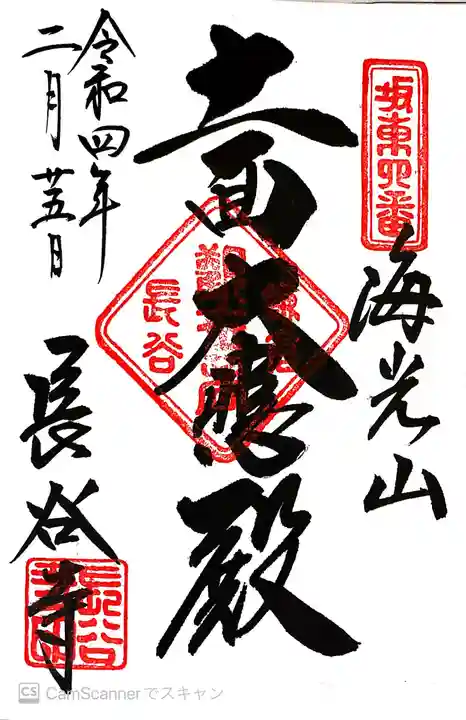 坂東四番
海光山
十一面大悲殿
長谷
令和四年
二月廿五日
長谷寺
CS CamScannerでスキャン